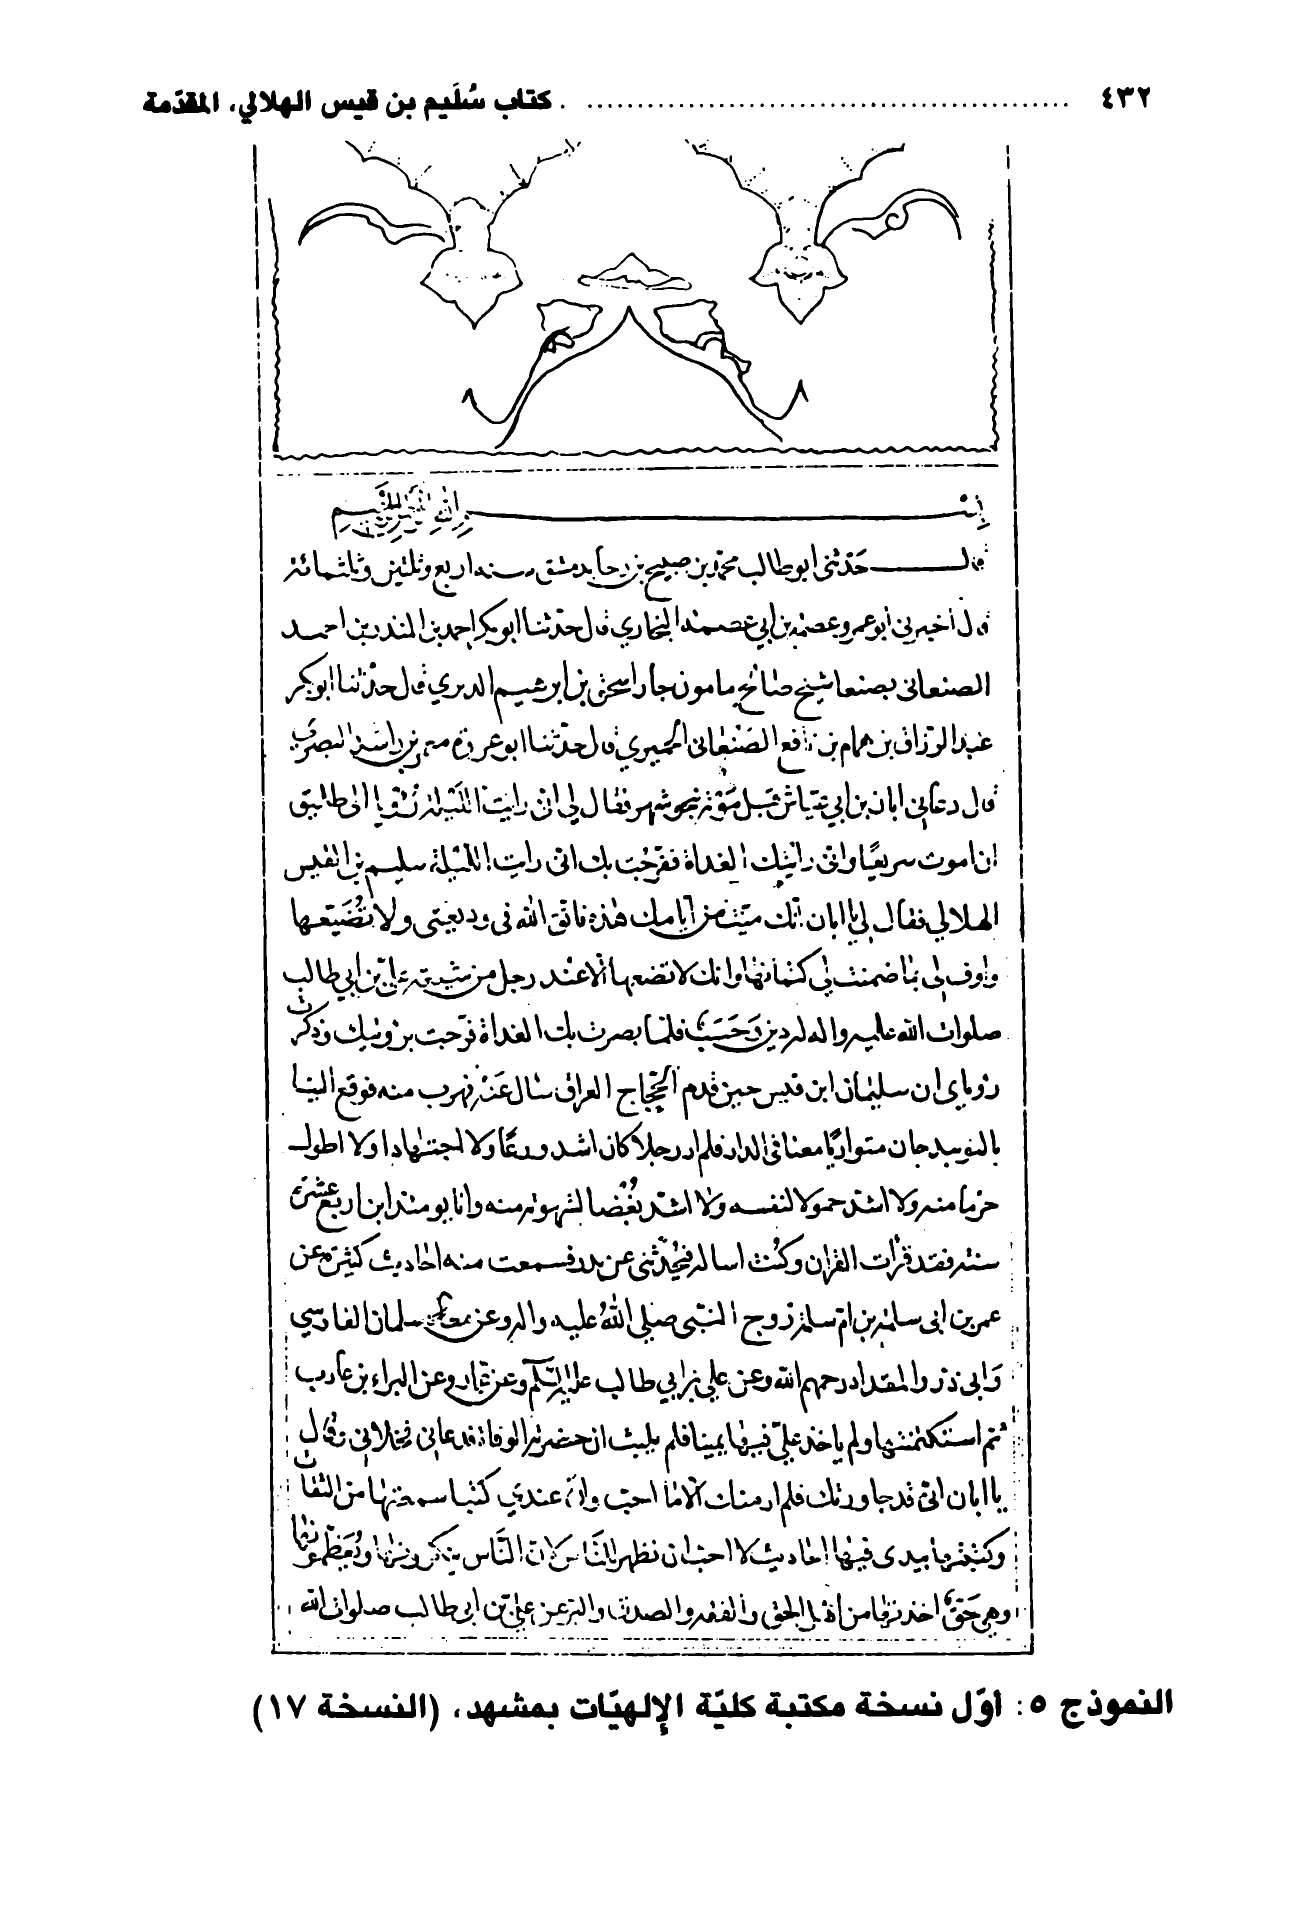 ٤٣٢ ........ كتاب سُلَيم بن قيس الهلالي، المقدّمة
بسم الله الرحمن الرحيم
قال حدثنى ابوطالب محمد بن صبيح بن رجا بدمشق سنه اربع وثلثين وثلثمائة
قال اخبرنى ابو عمرو عصمة بن ابي عصمة البخاري قال حدثنا ابوبكر احمد بن المنذر بن احمد
الصنعانى بصنعا شيخ صالح مامون جار اسحق بن ابرهيم الدبري قال حدثنا ابوبكر
عبد الرزاق بن همام بن نافع الصنعانى الحميري قال حدثنا ابو عروة معمر بن راشد البصري
قال دعانى ابان بن ابي عياش قبل موته بنحو شهر فقال لي انى رايت الليلة رؤيا انى خليق
ان اموت سريعًا وانى رايتك الغداة ففرحت بك انى رايت الليلة سليم بن القيس
الهلالي فقال لي يا ابان انك ميت من ايامك هذه فاتق الله فى وديعتى ولا تضيعها
واوف لى بما ضمنت لي كتمانها وانك لا تضعها الا عند رجل من شيعة على بن ابي طالب
صلوات الله عليه واله له دين وحسب فلما بصرت بك الغداة فرحت برؤيتك وذكرت
رؤياى ان سليمان ابن قيس حين قدم الحجاج العراق سال عنه فهرب منه فوقع الينا
بالنوبيدجان متواريًا معنا فى الدار فلم ار رجلا كان اشد ورعًا ولا اجتهادا ولا اطول
حزنا منه ولا اشد خمولا لنفسه ولا اشد بغضا لشهوته منه وانا يومئذ ابن اربع عشرة
سنة فقد قرات القران وكنت اساله فيحدثنى عن بدر فسمعت منه احاديث كثيرة عن
عمر بن ابى سلمة بن ام سلمة زوج النبى صلي الله عليه واله وعن معاذ سلمان الفارسي
وابى ذر والمقداد رحمهم الله وعن علي بن ابي طالب عليه السلم وعن عمار وعن البراء بن عازب
ثم استكتمنيها ولم ياخذ علي فيها يمينا فلم يلبث ان حضرته الوفاة فدعانى فخلانى وقال
يا ابان انى قد جاورتك فلم ار منك الا ما احب وان عندي كتبا سمعتها من الثقات
وكتبتها بيدى فيها احاديث لا احب ان تظهر للناس لان الناس ينكرونها ويعظمونها
وهي حق اخذتها من اهل الحق والفقه والصدق والبر عن على بن ابى طالب صلوات الله
النموذج ٥: أوّل نسخة مكتبة كليّة الإلهيّات بمشهد، (النسخة ١٧)